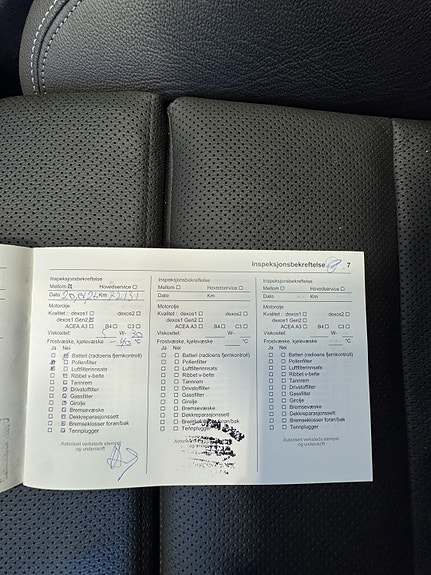 Inspeksjonsbekreftelse 7
Inspeksjonsbekreftelse
Mellom Hovedservice
Dato Km
Motorolje
Kvalitet : dexos1 dexos2
dexos1 Gen2
ACEA A3 B4 C3
Viskositet: W- 30
Frostvæske, kjølevæske -40 °C
Ja Nei
Batteri (radioens fjernkontroll)
Pollenfilter
Luftfilterinnsats
Ribbet v-belte
Tannrem
Drivstoffilter
Gassfilter
Girolje
Bremsevæske
Dekkreparasjonssett
Bremseklosser foran/bak
Tennplugger
Autorisert verksteds stempel
og underskrift
Mellom Hovedservice
Dato Km
Motorolje
Kvalitet : dexos1 dexos2
dexos1 Gen2
ACEA A3 B4 C3
Viskositet: W-
Frostvæske, kjølevæske °C
Ja Nei
Batteri (radioens fjernkontroll)
Pollenfilter
Luftfilterinnsats
Ribbet v-belte
Tannrem
Drivstoffilter
Gassfilter
Girolje
Bremsevæske
Dekkreparasjonssett
Bremseklosser foran/bak
Tennplugger
Autorisert verksteds stempel
og underskrift
Mellom Hovedservice
Dato Km
Motorolje
Kvalitet : dexos1 dexos2
dexos1 Gen2
ACEA A3 B4 C3
Viskositet: W-
Frostvæske, kjølevæske °C
Ja Nei
Batteri (radioens fjernkontroll)
Pollenfilter
Luftfilterinnsats
Ribbet v-belte
Tannrem
Drivstoffilter
Gassfilter
Girolje
Bremsevæske
Dekkreparasjonssett
Bremseklosser foran/bak
Tennplugger
Autorisert verksteds stempel
og underskrift